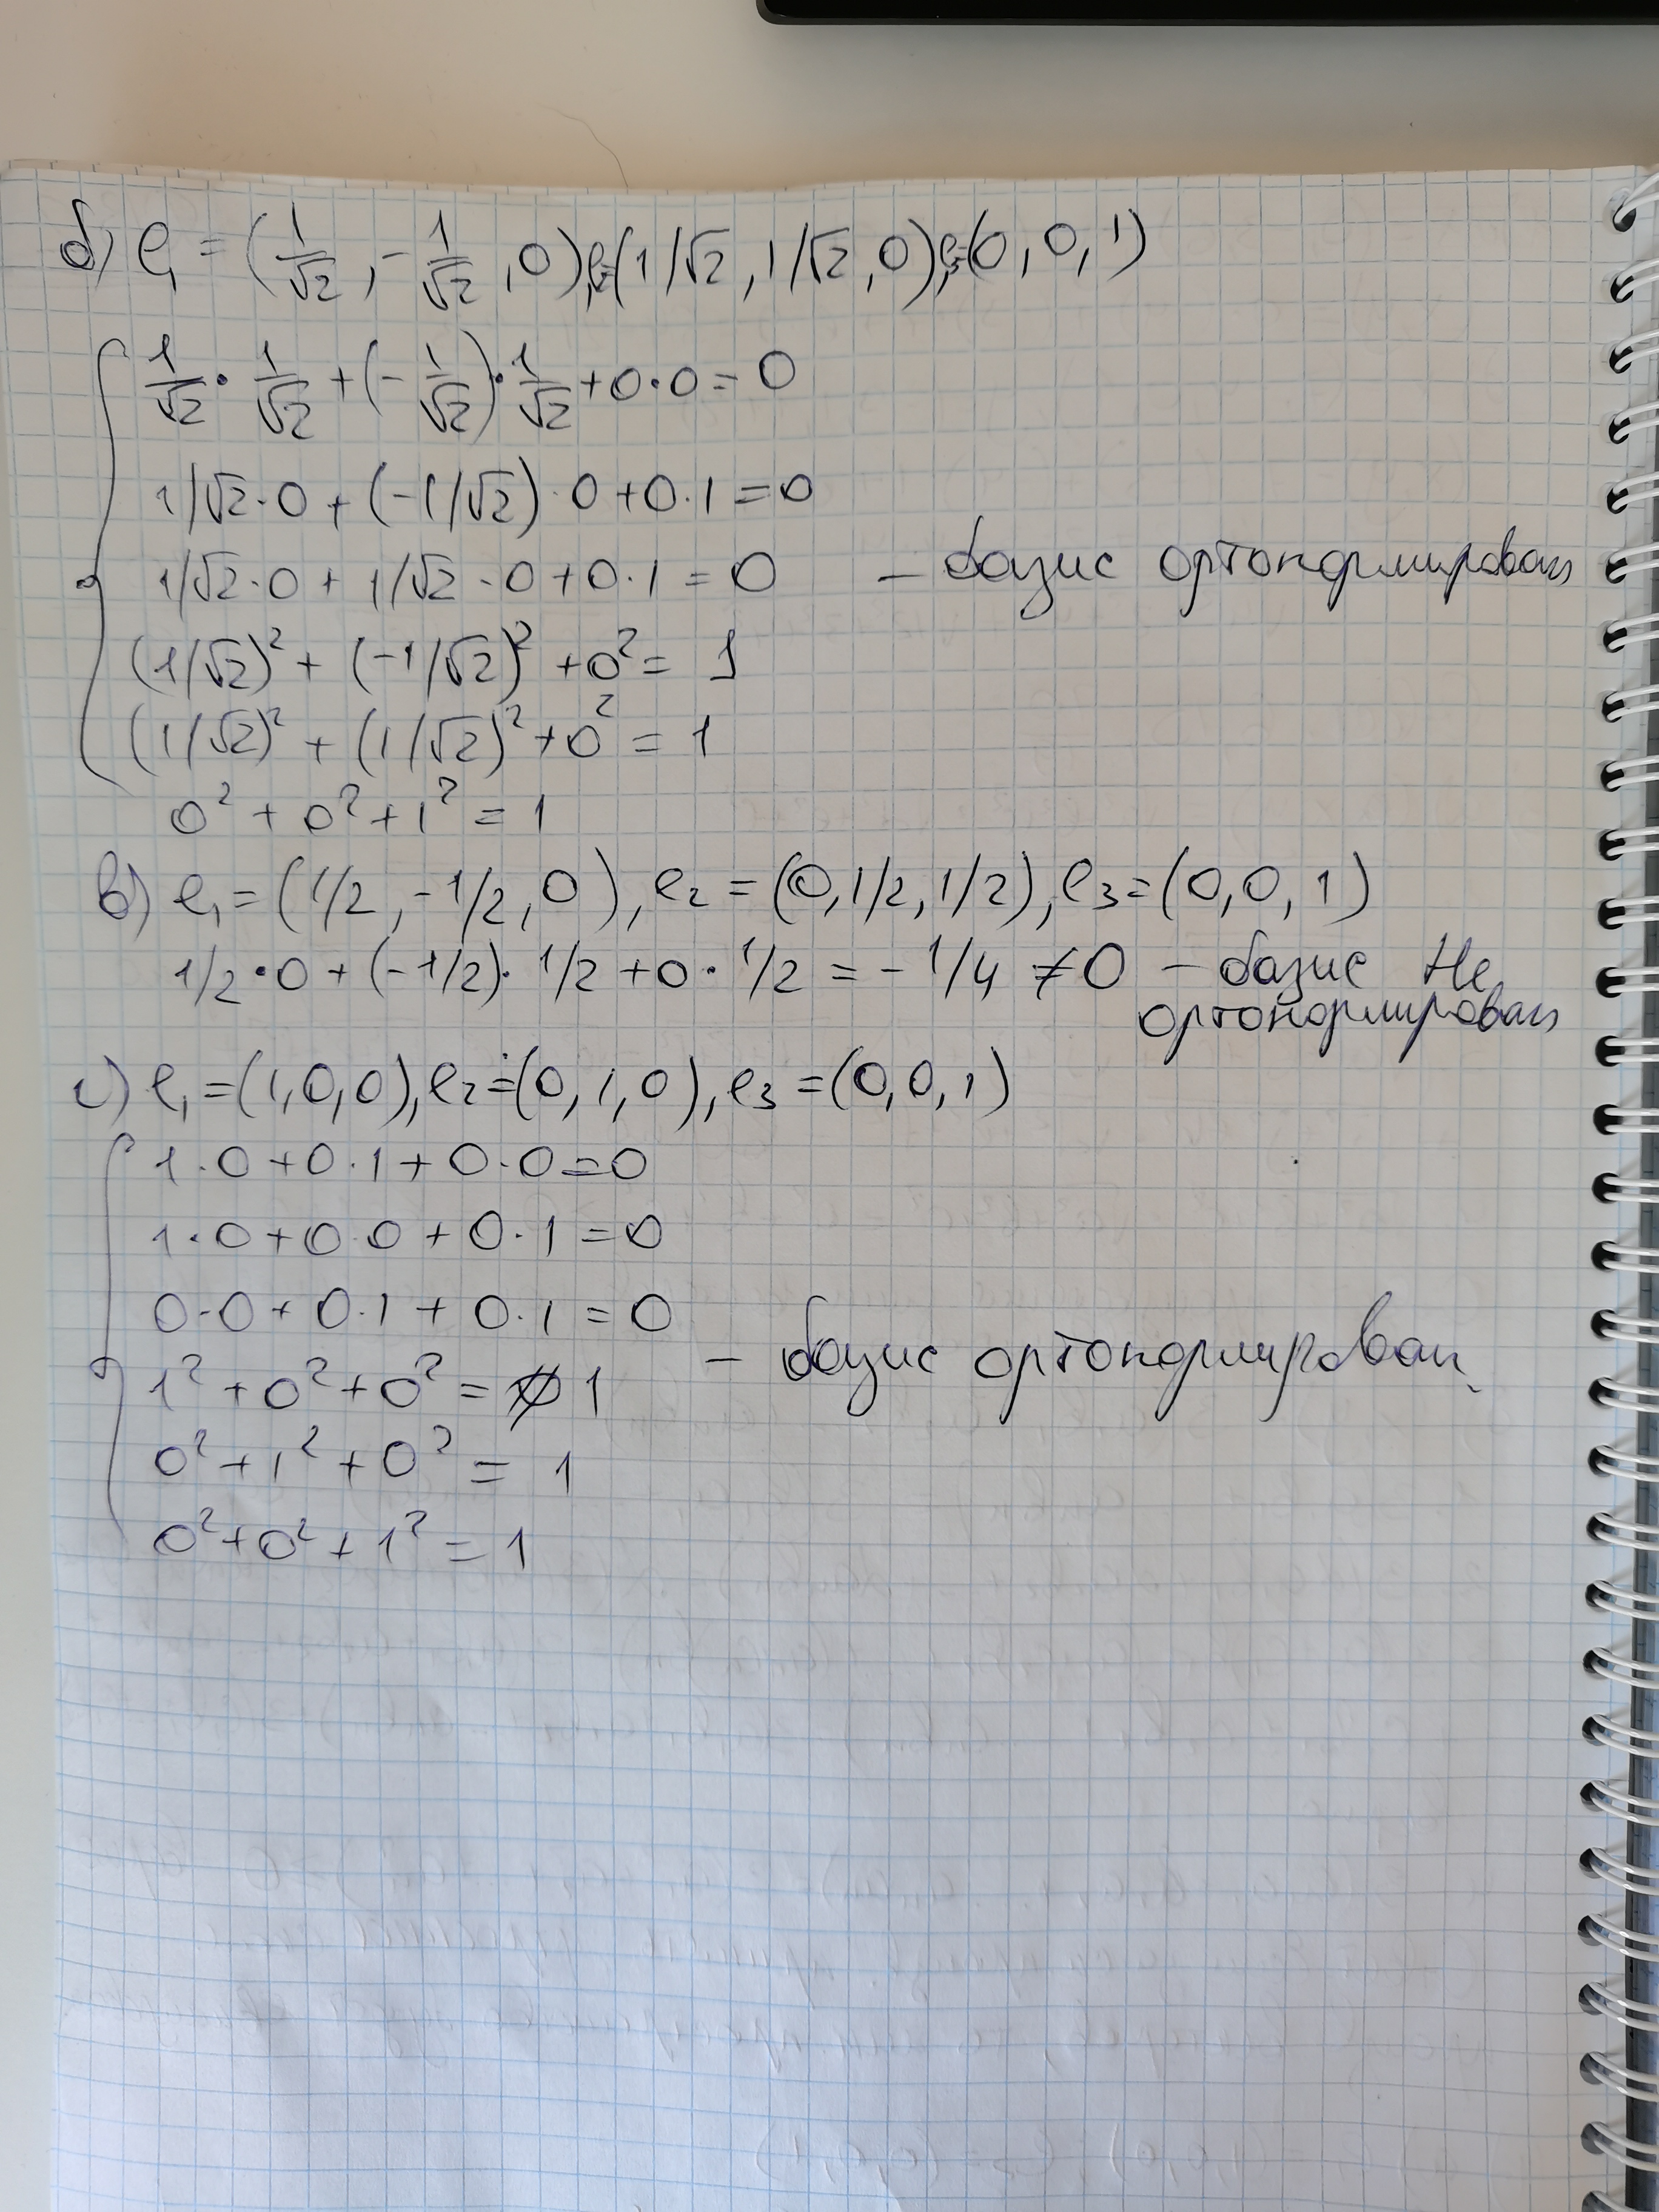 б) e₁ = (1/√2, -1/√2, 0), e₂=(1/√2, 1/√2, 0), e₃=(0, 0, 1)
1/√2 · 1/√2 + (-1/√2) · 1/√2 + 0·0 = 0
1/√2·0 + (-1/√2)·0 + 0·1 = 0
1/√2·0 + 1/√2·0 + 0·1 = 0 – базис ортонормирован
(1/√2)² + (-1/√2)² + 0² = 1
(1/√2)² + (1/√2)² + 0² = 1
0² + 0² + 1² = 1
в) e₁ = (1/2, -1/2, 0), e₂ = (0, 1/2, 1/2), e₃ = (0, 0, 1)
1/2·0 + (-1/2)·1/2 + 0·1/2 = -1/4 ≠ 0 – базис не
ортонормирован
с) e₁ = (1, 0, 0), e₂ = (0, 1, 0), e₃ = (0, 0, 1)
1·0 + 0·1 + 0·0 = 0
1·0 + 0·0 + 0·1 = 0
0·0 + 0·1 + 0·1 = 0
– базис ортонормирован
1² + 0² + 0² = 1
0² + 1² + 0² = 1
0² + 0² + 1² = 1